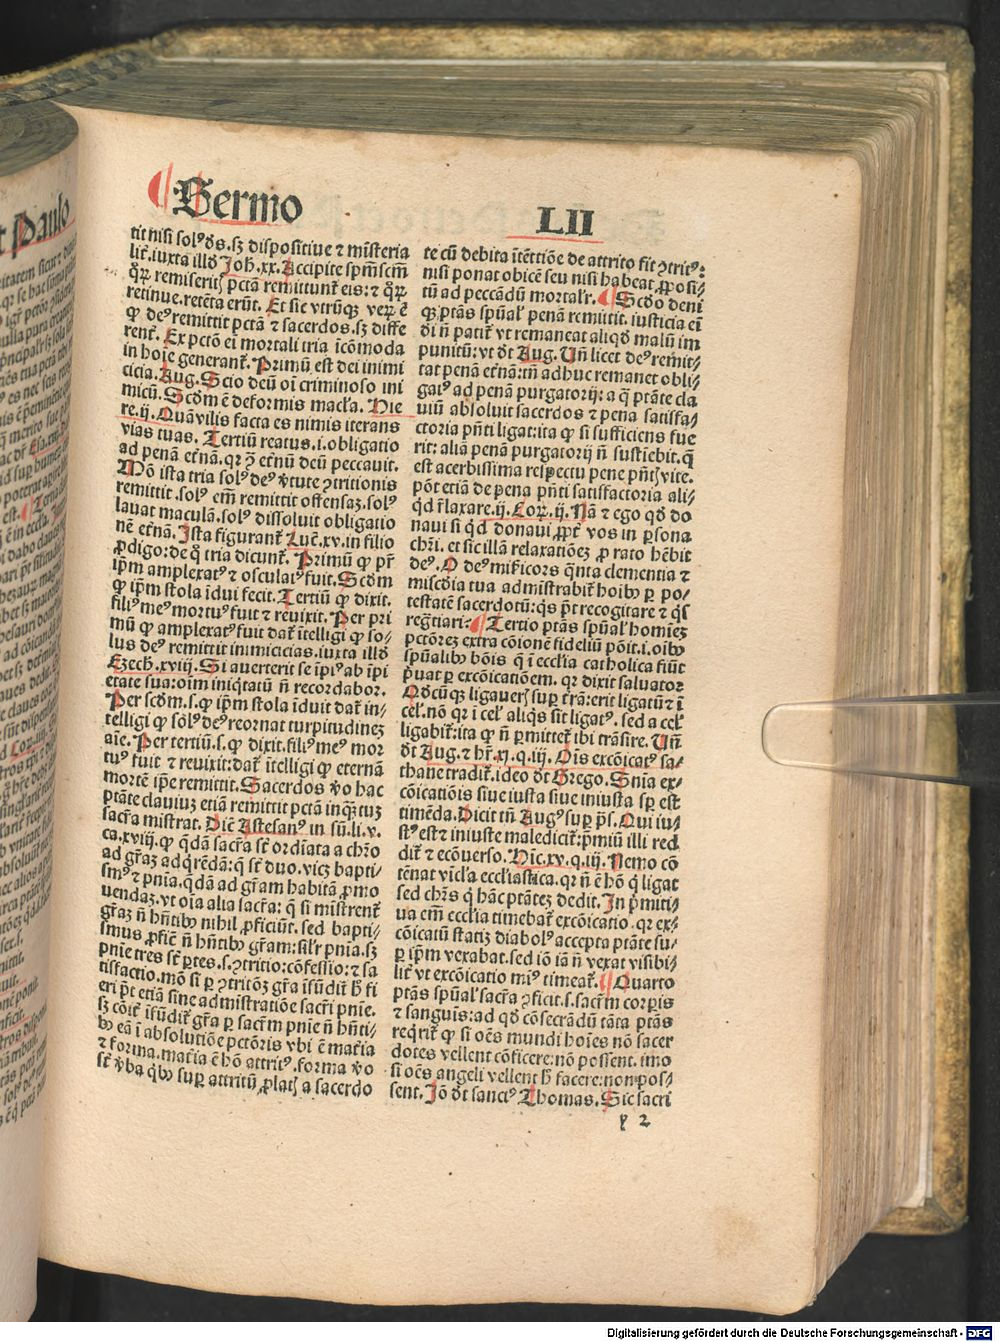 Sermo LII
tit nisi solꝰ ds̄. sꝫ dispositiue ⁊ mīsteria
lit̄. iuxta illd̄ Joh̄. xx. Accipite sp̄m sc̄m
q̄ꝝ remiseritꝭ pctā remittunt̄ eis: ⁊ q̄ꝝ
retinue. retēta erūt. Et sic vtrūqꝫ veꝝ ē
ꝙ deꝰ remittit pctā ⁊ sacerdos. sꝫ diffe
rent̄. Ex pctō ei mortali tria īcōmoda
in hoīe generant̄. Primū est dei inimi
cicia. Aug. Scio deū oī criminoso ini
micū. Scdm ē deformis macl̄a. Hie
re. ij. Quā vilis facta es nimis iterans
vias tuas. Tertiū reatus. i. obligatio
ad penā et̄nā. qꝛ ꝯ et̄nū deū peccauit.
Mō ista tria solꝰ deꝰ v̄tute ꝯtritionis
remittit. solꝰ em̄ remittit offensaꝫ. solꝰ
lauat maculā. solꝰ dissoluit obligatio
nē et̄nā. Ista figurant̄ Luc̄. xv. in filio
ꝓdigo: de q̄ tria dicunt̄. Primū ꝙ pr̄
ip̄m amplexatꝰ ⁊ osculatꝰ fuit. Scdm
ꝙ ip̄m stola īdui fecit. Tertiū ꝙ dixit.
filiꝰ meꝰ mortuꝰ fuit ⁊ reuixit. Per pri
mū ꝙ amplexatꝰ fuit dat̄ ītelligi ꝙ so⸗
lus deꝰ remittit inimicicias. iuxta illd̄
Ezech. xviij. Si auerterit se īpiꝰ ab īpi
etate sua: oīm iniqtatū n̄ recordabor.
Per scdm. s. ꝙ ip̄m stola īduit dat̄ in⸗
telligi ꝙ solꝰ deꝰ reornat turpitudineꝫ
aīe. Per tertiū. s. ꝙ dixit. filiꝰ meꝰ mor
tuꝰ fuit ⁊ reuixit: dat̄ ītelligi ꝙ eternā
mortē ip̄e remittit. Sacerdos v̄o hac
ptāte clauiuꝫ etiā remittit pctā inqꝫtuꝫ
sacr̄a mīstrat. Dic̄ Astesanꝰ in sū. li. v.
ca. xviij. ꝙ q̄dā sacr̄a st̄ ordīata a chr̄o
ad gr̄aꝫ adq̄rēdā: q̄ st̄ duo. vicꝫ bapti⸗
smꝰ ⁊ pnīa. q̄dā ad gr̄am habitā ꝓmo
uendaꝫ. vt oīa alia sacr̄a: q̄ si mīstrent̄
gr̄aꝫ n̄ hn̄tibꝰ nihil ꝓficiūt. sed bapti⸗
smus ꝓfic̄ n̄ hn̄tibꝰ gr̄am: silr̄ pnīa. sꝫ
pnīe tres st̄ ꝑtes. s. ꝯtritio: cōfessio: ⁊ sa
tisfactio. mō si ꝑ ꝯtritōꝫ gr̄a īfūdit̄ h̄ fi
eri pt̄ etiā sine admīstratiōe sacr̄i pnīe.
sꝫ cōit̄ īfūdit̄ gr̄a ꝑ sacr̄m pnīe n̄ hn̄ti⸗
bꝰ eā ī absolutiōe pctōris vbi ē mat̄ia
⁊ forma. mat̄ia ē hō attritꝰ. forma v̄o
st̄ v̄ba qibꝰ suꝑ attritū ꝓlatꝭ a sacerdo
te cū debita ītēttiōe de attrito fit ꝯtritꝰ:
nisi ponat obicē seu nisi habeat ꝓposi⸗
tū ad peccādū mortalr̄. Scdo deni
qꝫ ptās spūal̄ penā remittit. iusticia ei
di n̄ patit̄ vt remaneat aliqd̄ malū im
punitū: vt dt̄ Aug. Vn̄ licet deꝰ remit⸗
tat penā et̄nā: tn̄ adhuc remanet obli⸗
gatꝰ ad penā purgatorij: a q̄ ptāte cla
uiū absoluit sacerdos ⁊ pena satisfa⸗
ctoria pn̄ti ligat: ita ꝙ si sufficiens fue
rit: aliā penā purgatorij n̄ sustiebit. q̄
est acerbissima respectu pene pn̄tꝭ vite.
pōt etiā de pena pn̄ti satisfactoria ali⸗
qd̄ r̄laxare. ij. Coꝝ. ij. Nā ⁊ ego qd̄ do
naui si qd̄ donaui ꝓpt̄ vos in ꝑsona
chr̄i. et sic illā relaxatiōeꝫ ꝓ rato hēbit
deꝰ. O deꝰ mīficors q̄nta clementia ⁊
miscd̄ia tua admīstrabit̄ hoībꝰ ꝑ po⸗
testatē sacerdotū: qs̄ pt̄ recogitare ⁊ qs̄
reḡtiari: Tertio ptās spūal̄ homīeꝫ
pctōreꝫ extra cōionē fideliū pōit. i. oībꝰ
spūalibꝰ bōis q̄ ī eccl̄ia catholica fiūt
pͥuat ꝑ excōicatiōem. qꝛ dixit saluator
Qd̄cūqꝫ ligauerꝭ suꝑ tr̄ā: erit ligatū ⁊ ī
cel̄. nō qꝛ i cel̄ aliqs̄ sit ligatꝰ. sed a cel̄
ligabit̄: ita ꝙ n̄ ꝑmittet̄ ibi trāsire. Vn̄
dt̄ Aug. ⁊ hr̄. xj. q. iij. Oīs excōicatꝰ sa⸗
thane tradit̄. ideo dt̄ Grego. Snīa ex⸗
cōicatiōis siue iusta siue iniusta sꝑ est
timēda. Dicit tn̄ Augꝰ suꝑ ps̄. Qui iu⸗
stꝰ est ⁊ iniuste maledicit̄: pͥmiū illi red
dit̄ ⁊ ecōuerso. Hic. xv. q. iij. Nemo cō
tēnat vīcl̄a eccl̄iastica. qꝛ n̄ ē hō q̄ ligat
sed chr̄s q̄ hāc ptāteꝫ dedit. In pͥmiti⸗
ua em̄ eccl̄ia timebat̄ excōicatio. qꝛ ex⸗
cōicatū statiꝫ diabolꝰ accepta ptāte su⸗
ꝑ ip̄m vexabat. sed iō iā n̄ vexat visibi⸗
lit̄ vt excōicatio minꝰ timeat̄. Quarto
ptās spūal̄ sacr̄a ꝯficit. s. sacr̄m corꝑis
⁊ sanguis: ad qd̄ cōsecrādū tāta ptās
reqͥrit̄ ꝙ si oēs mundi hoīes nō sacer
dotes vellent cōficere: nō possent. imo
si oēs angeli vellent h̄ facere: non pos⸗
sent. Iō dt̄ sanctꝰ Thomas. Sic sacri
y 2
Digitalisierung gefördert durch die Deutsche Forschungsgemeinschaft - DFG